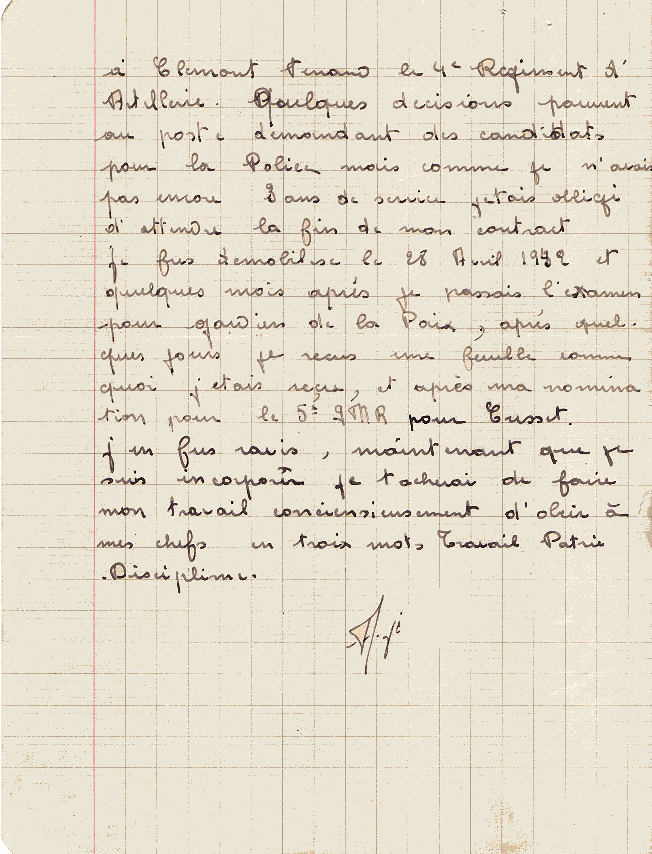 à Clemont Ferrand le 4e Regiment d'
Artillerie. Quelques decisions parurent
au poste demandant des candidats
pour la Police mais comme je n'avais
pas encore 3 ans de service jetais obligé
d'attendre la fin de mon contract
je fus demobilise le 28 Avril 1942 et
quelques mois après je passais l'examen
pour gardien de la Paix, après quel-
ques jours je recus une feuille comme
quoi j'etais reçu, et après ma nomina
tion pour le 5e GMR pour Cusset.
j'en fus ravis, maintenant que je
suis incorporer je tacherai de faire
mon travail conciensieusement d'obeir à
mes chefs en trois mots Travail Patrie
.Discipline.